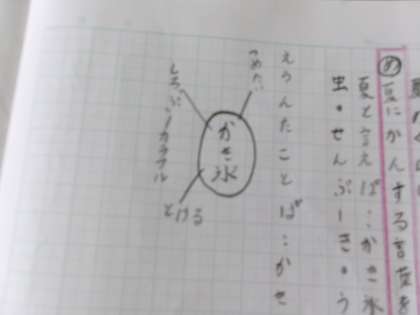 め 夏にかんする言葉を
夏と言えば…かき氷
虫・せんぷーき・う
えらんだことば…かき
かき氷
つめたい
しろっぷ
カラフル
とける